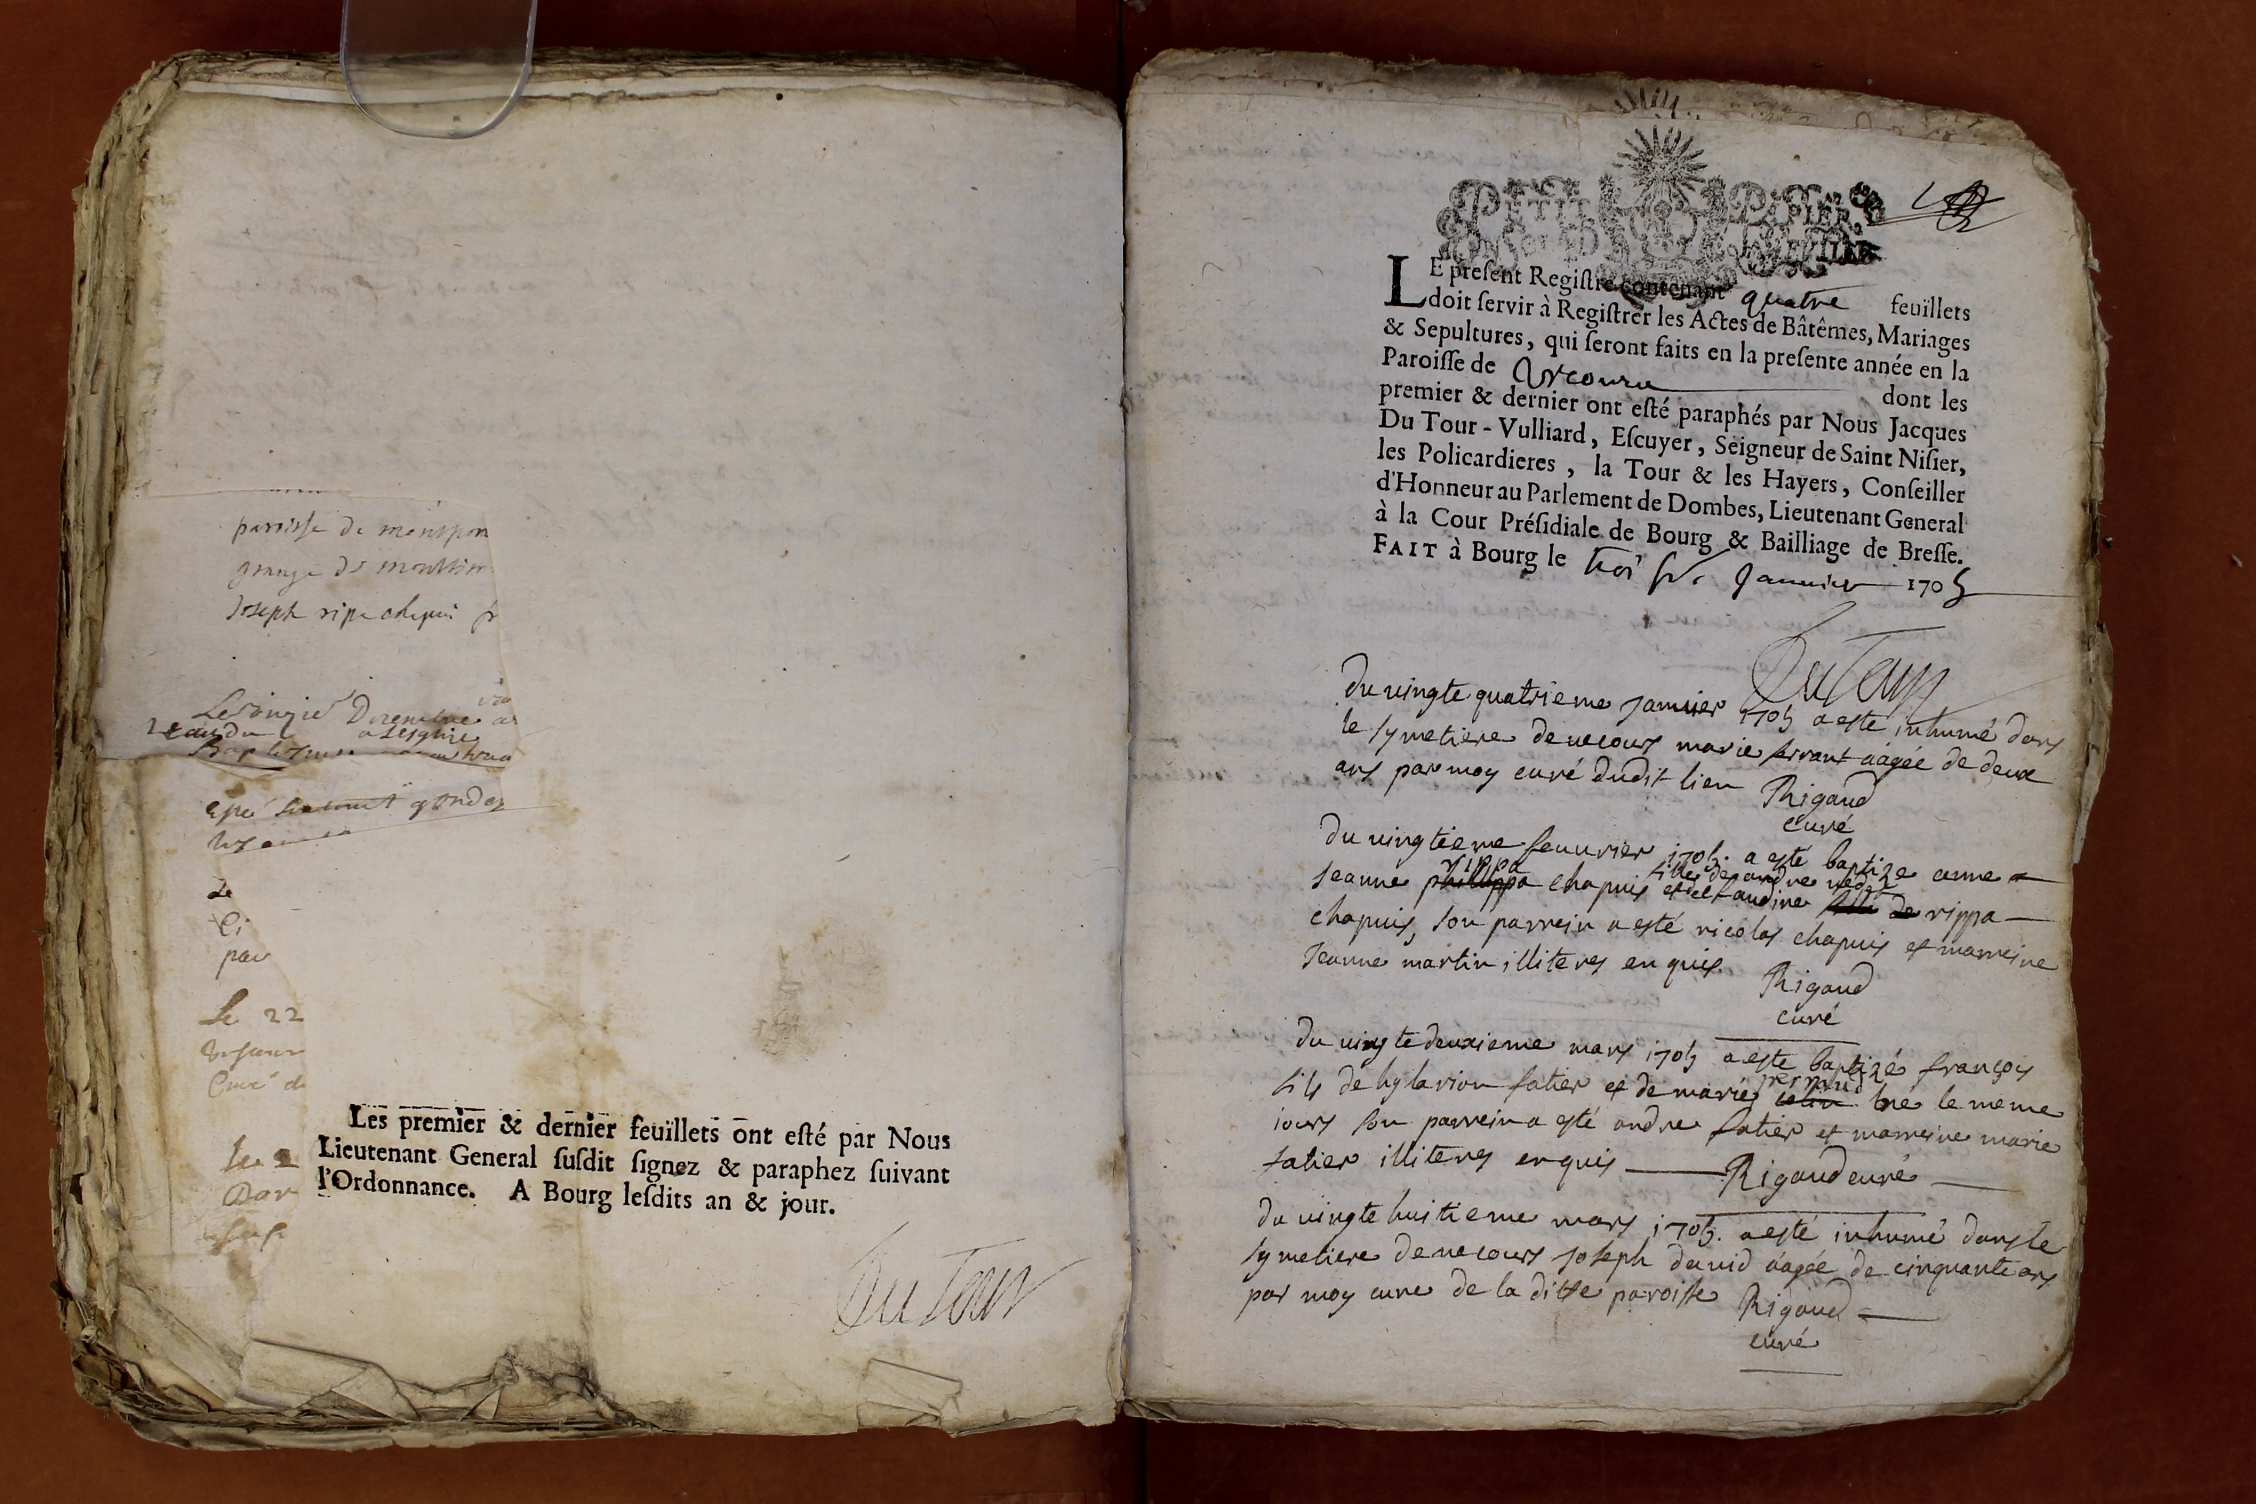 paroisse de montpon
grange de
Joseph ripe chapui
Decembre
Le
pau
Le 22
Curé de
Les premier & dernier feuillets ont esté par Nous
Lieutenant General susdit signez & paraphez suivant
l'Ordonnance. A Bourg lesdits an & jour.
DuTour
PETIT PAPIER
LE present Registre contenant quatre feuillets
doit servir à Registrer les Actes de Bâtêmes, Mariages
& Sepultures, qui seront faits en la presente année en la
Paroisse de Vecourt dont les
premier & dernier ont esté paraphés par Nous Jacques
Du Tour-Vulliard, Escuyer, Seigneur de Saint Nisier,
les Policardieres, la Tour & les Hayers, Conseiller
d'Honneur au Parlement de Dombes, Lieutenant General
à la Cour Présidiale de Bourg & Bailliage de Bresse.
FAIT à Bourg le Janvier 1705
DuTour
du vingte quatrieme janvier 1705 a esté inhumé dans
le symetiere de vecours marie ferrant aagée de deux
ans par moy curé dudit lieu Rigaud
curé
du vingtieme feuvrier 1705. a esté baptize anne
rippa fille de andre
Jeanne philippa chapuis et de claudine fille de rippa
chapuis, son parrein a esté nicolas chapuis et marreine
Jeanne martin illiteres enquis. Rigaud
curé
du vingte deuxieme mars 1705 a esté baptizé françois
fils de hylarion fatier et de marie ne le meme
jours son parrein a esté andre fatier et marreine marie
fatier illiteres enquis Rigaud curé
du vingte huitieme mars 1705. a esté inhumé dans le
symetiere de vecours joseph david aagée de cinquante ans
par moy cure de la ditte paroisse Rigaud
curé